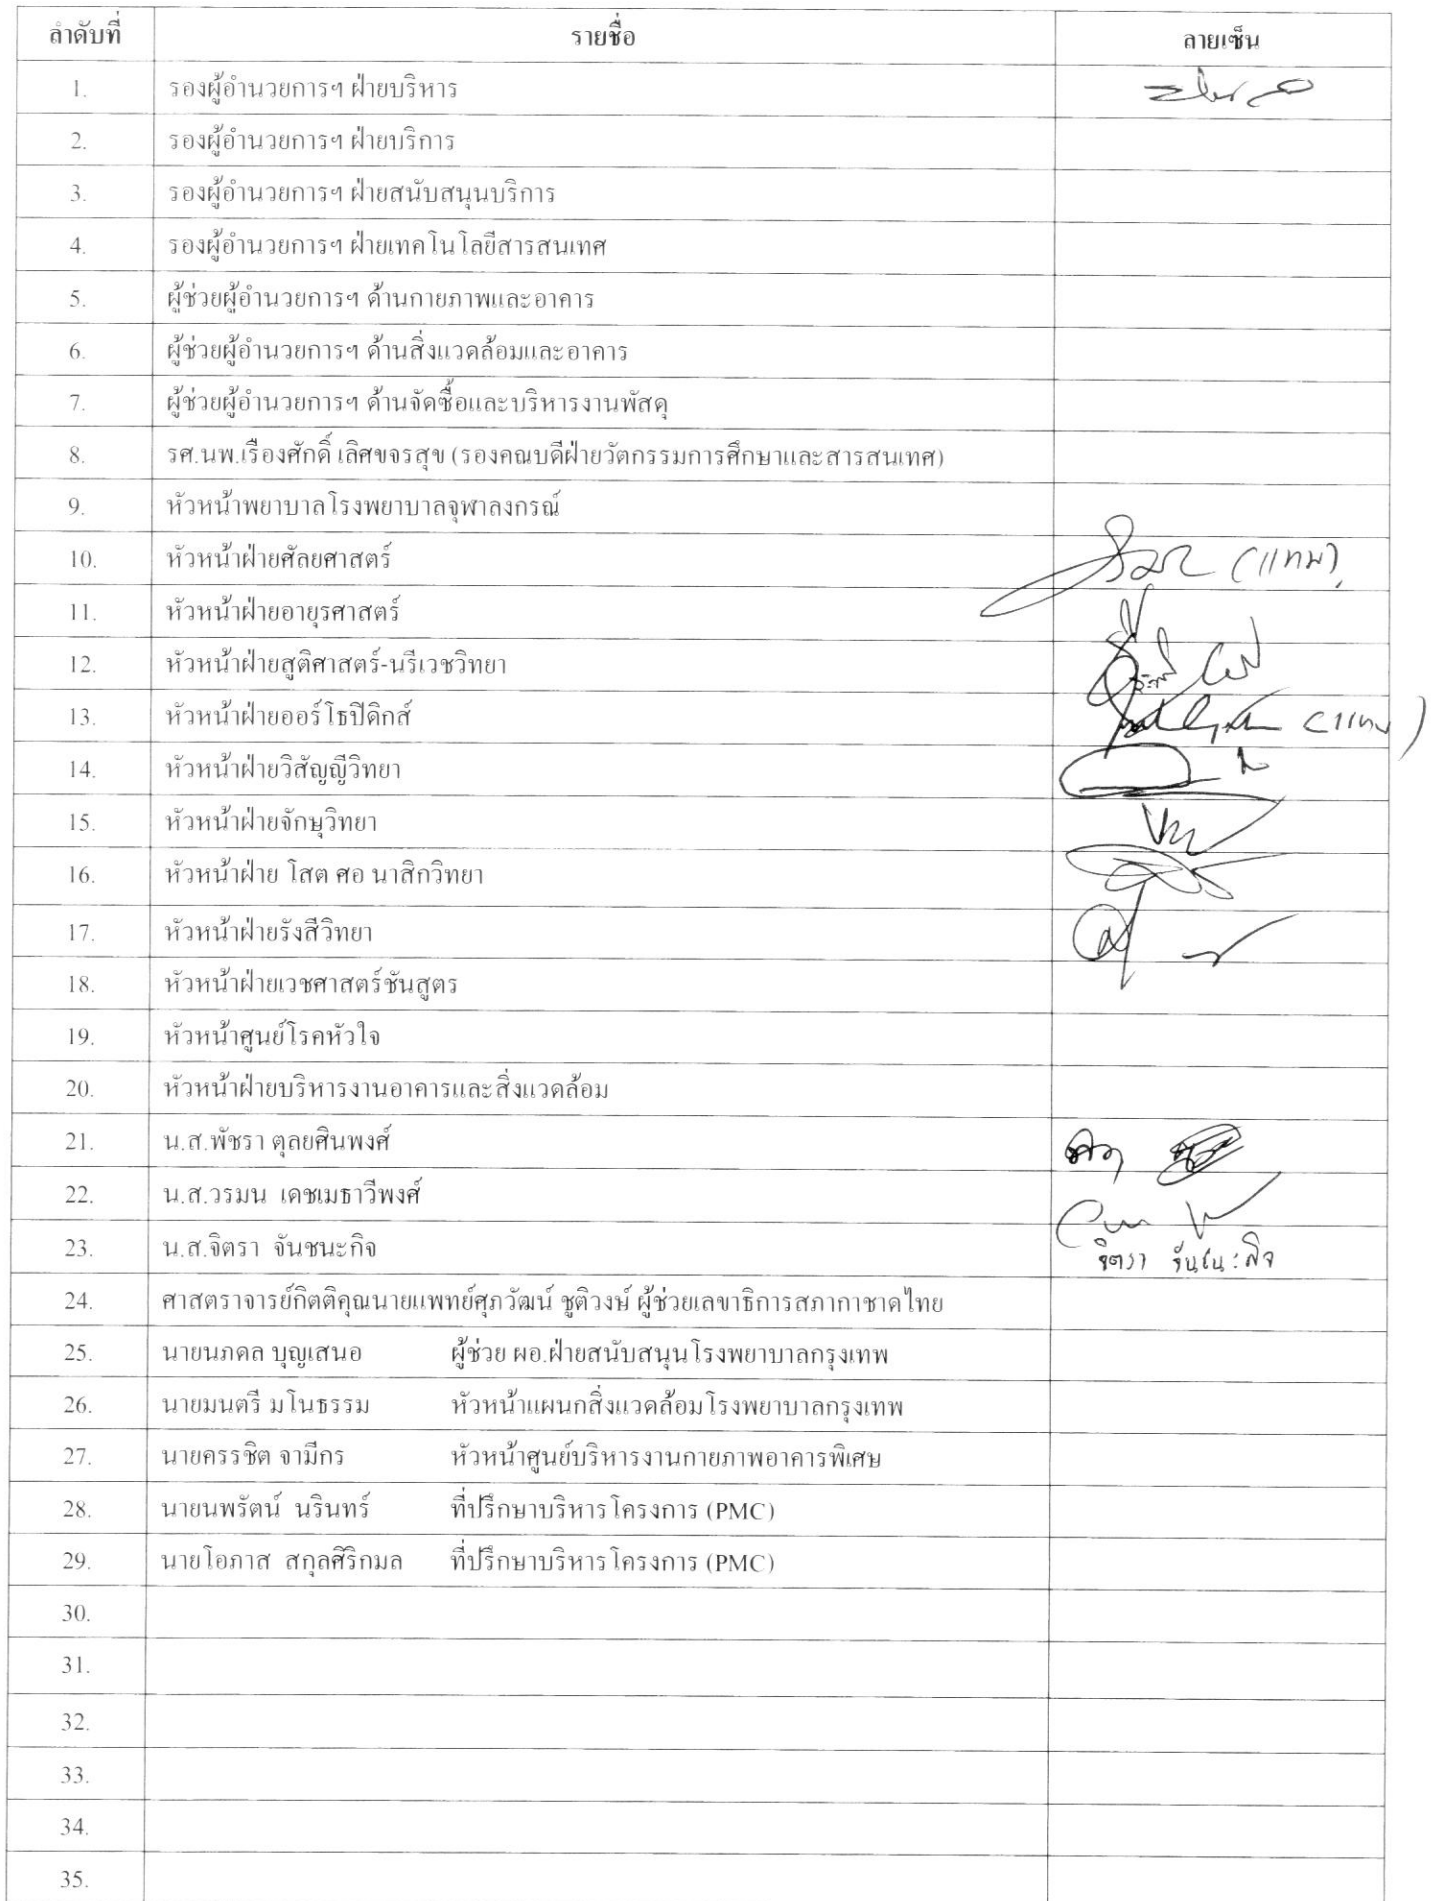 ลำดับที่ รายชื่อ ลายเซ็น
1. รองผู้อำนวยการฯ ฝ่ายบริหาร
2. รองผู้อำนวยการฯ ฝ่ายบริการ
3. รองผู้อำนวยการฯ ฝ่ายสนับสนุนบริการ
4. รองผู้อำนวยการฯ ฝ่ายเทคโนโลยีสารสนเทศ
5. ผู้ช่วยผู้อำนวยการฯ ด้านกายภาพและอาคาร
6. ผู้ช่วยผู้อำนวยการฯ ด้านสิ่งแวดล้อมและอาคาร
7. ผู้ช่วยผู้อำนวยการฯ ด้านจัดซื้อและบริหารงานพัสดุ
8. รศ.นพ.เรืองศักดิ์ เลิศขจรสุข (รองคณบดีฝ่ายวัตกรรมการศึกษาและสารสนเทศ)
9. หัวหน้าพยาบาลโรงพยาบาลจุฬาลงกรณ์
10. หัวหน้าฝ่ายศัลยศาสตร์ (แทน)
11. หัวหน้าฝ่ายอายุรศาสตร์
12. หัวหน้าฝ่ายสูติศาสตร์-นรีเวชวิทยา
13. หัวหน้าฝ่ายออร์โธปิดิกส์ (แทน)
14. หัวหน้าฝ่ายวิสัญญีวิทยา
15. หัวหน้าฝ่ายจักษุวิทยา
16. หัวหน้าฝ่าย โสต ศอ นาสิกวิทยา
17. หัวหน้าฝ่ายรังสีวิทยา
18. หัวหน้าฝ่ายเวชศาสตร์ชันสูตร
19. หัวหน้าศูนย์โรคหัวใจ
20. หัวหน้าฝ่ายบริหารงานอาคารและสิ่งแวดล้อม
21. น.ส.พัชรา ตุลยศินพงศ์
22. น.ส.วรมน เดชเมธาวีพงศ์
23. น.ส.จิตรา จันชนะกิจ จิตรา จันชนะกิจ
24. ศาสตราจารย์กิตติคุณนายแพทย์ศุภวัฒน์ ชูติวงษ์ ผู้ช่วยเลขาธิการสภากาชาดไทย
25. นายนภดล บุญเสนอ ผู้ช่วย ผอ.ฝ่ายสนับสนุนโรงพยาบาลกรุงเทพ
26. นายมนตรี มโนธรรม หัวหน้าแผนกสิ่งแวดล้อมโรงพยาบาลกรุงเทพ
27. นายครรชิต จามีกร หัวหน้าศูนย์บริหารงานกายภาพอาคารพิเศษ
28. นายนพรัตน์ นรินทร์ ที่ปรึกษาบริหารโครงการ (PMC)
29. นายโอภาส สกุลศิริกมล ที่ปรึกษาบริหารโครงการ (PMC)
30.
31.
32.
33.
34.
35.